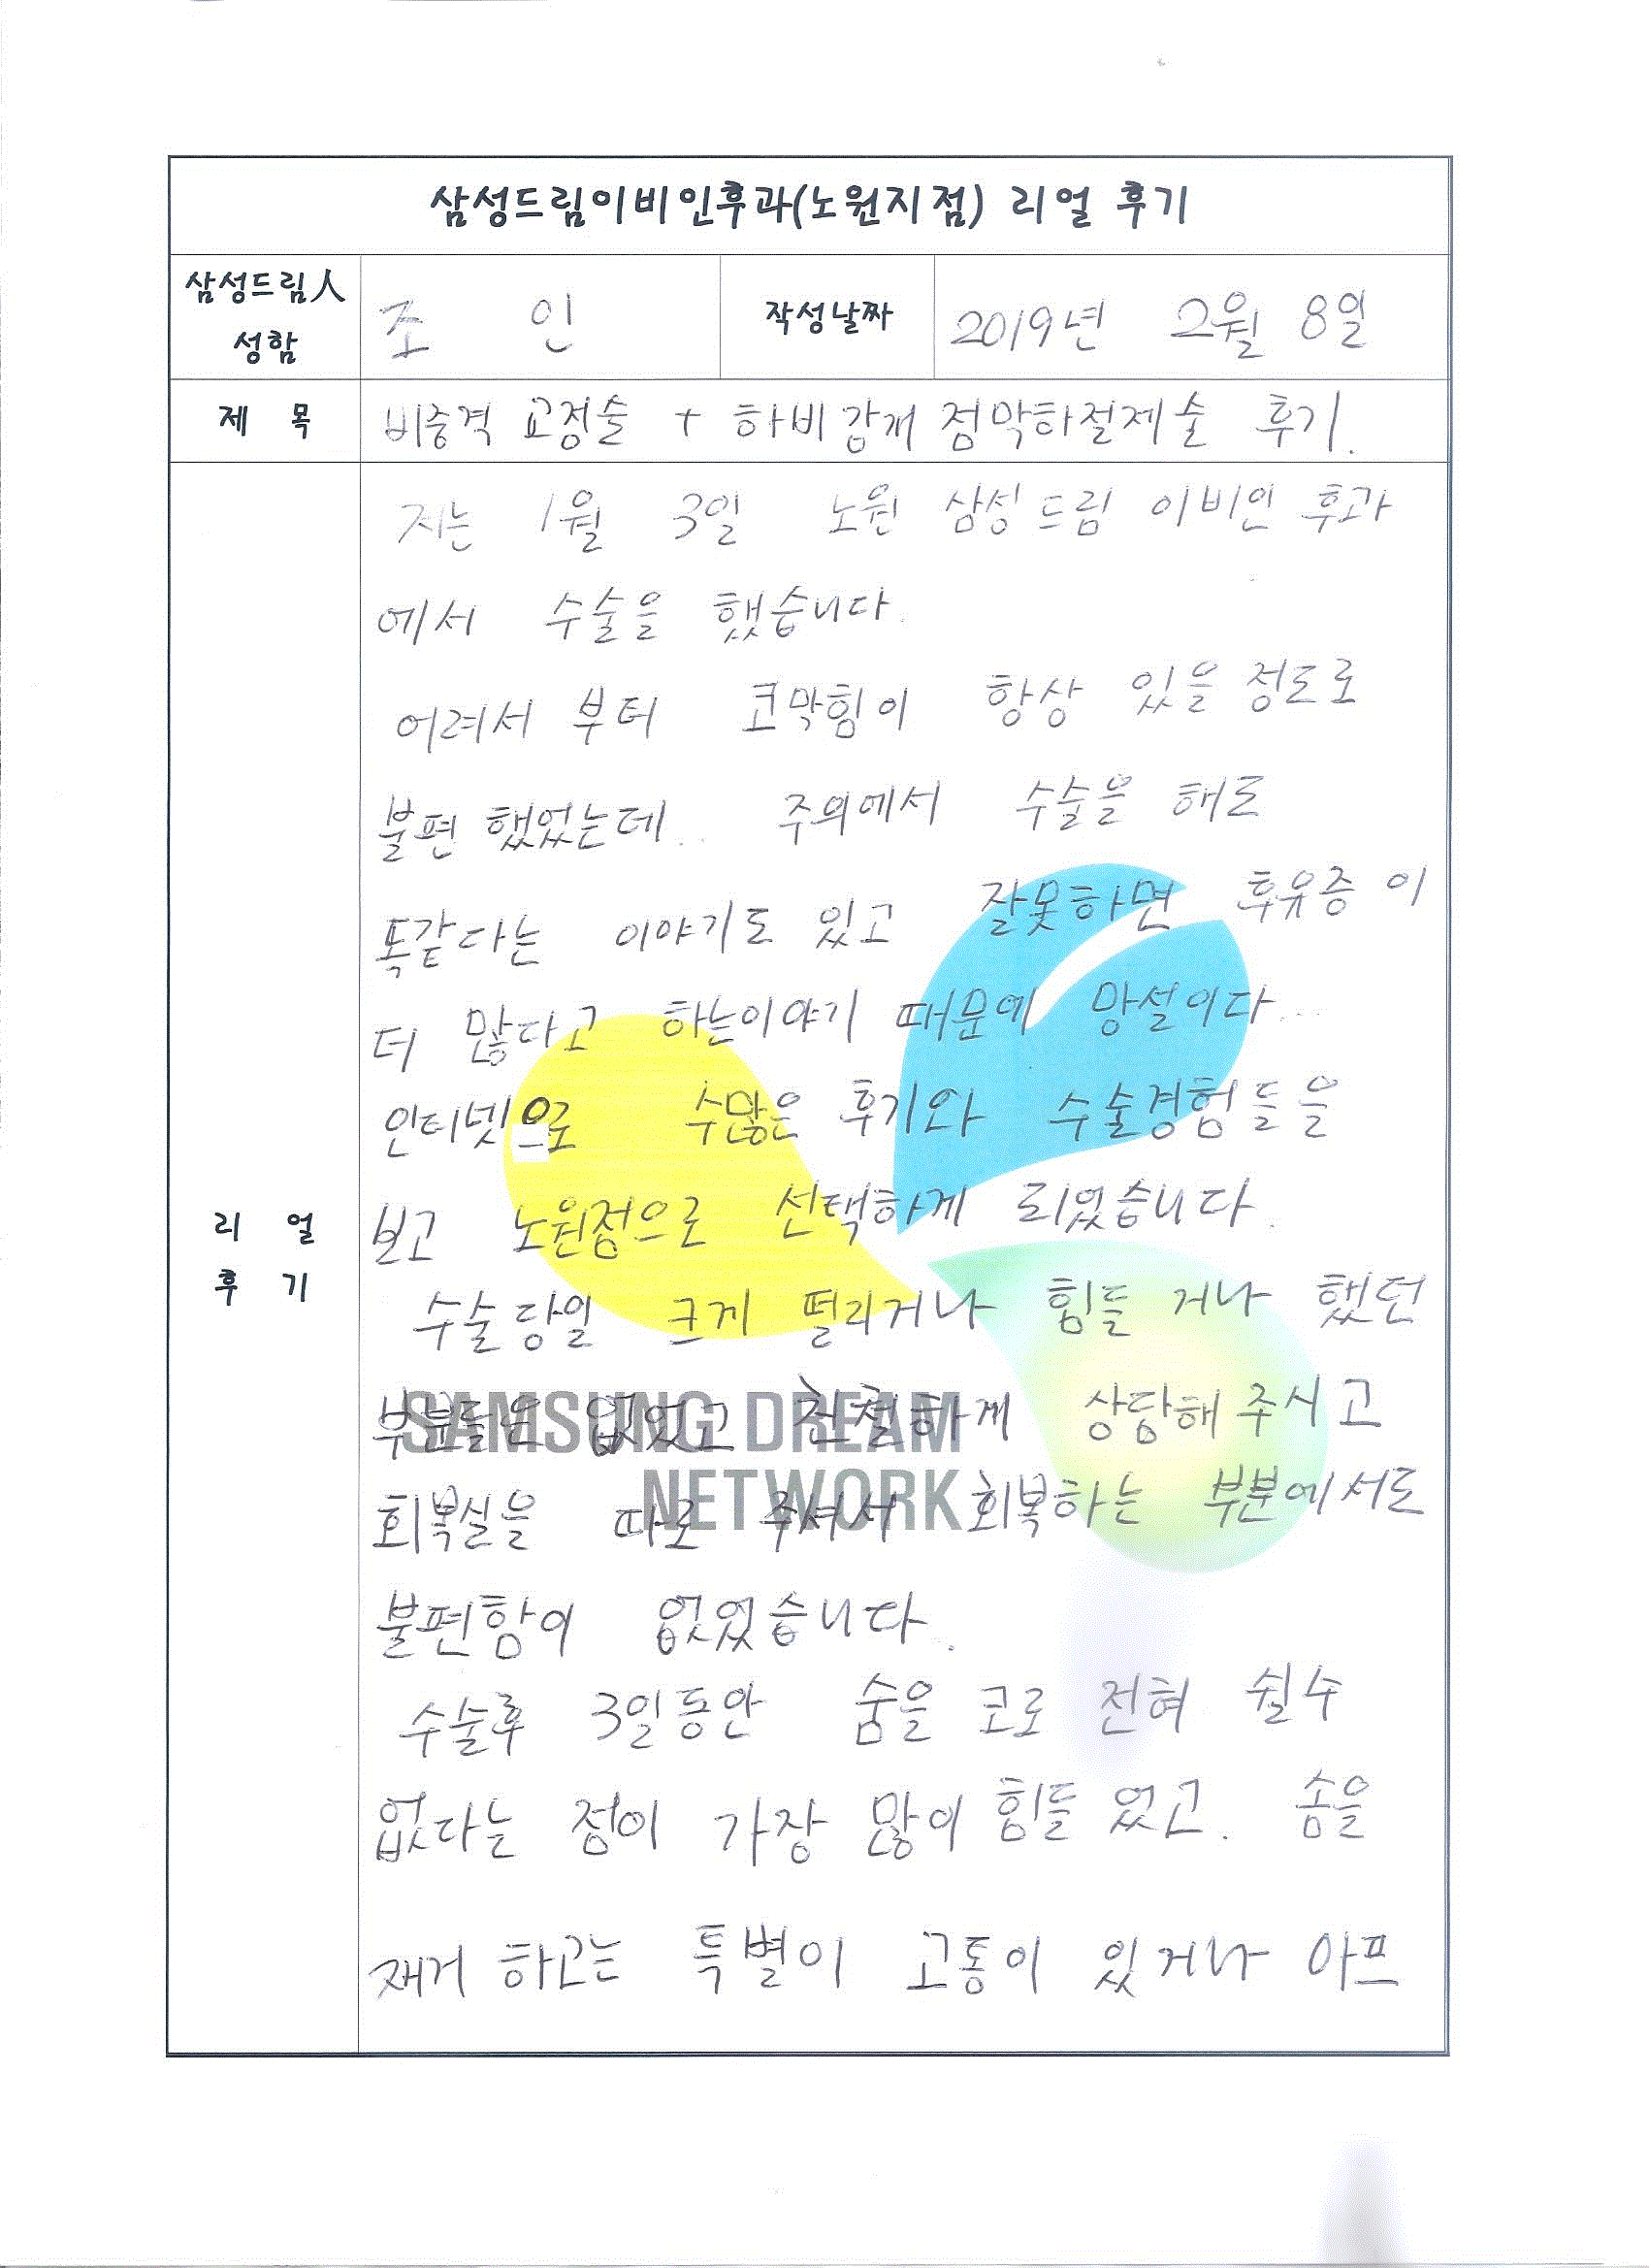 삼성드림이비인후과(노원지점) 리얼 후기
삼성드림人
성함
조 인
작성날짜
2019년 2월 8일
제 목
비중격 교정술 + 하비갑개 점막하절제술 후기.
리 얼
후 기
저는 1월 3일 노원 삼성드림 이비인 후과
에서 수술을 했습니다.
어려서 부터 코막힘이 항상 있을 정도로
불편 했었는데.. 주의에서 수술을 해도
똑같다는 이야기도 있고 잘못하면 후유증 이
더 많다고 하는이야기 때문에 망설이다...
인터넷으로 수많은 후기와 수술경험들을
보고 노원점으로 선택하게 되었습니다.
수술당일 크게 떨리거나 힘들 거나 했던
부분들은 없었고 친절하게 상담해 주시고
회복실을 따로 주셔서 회복하는 부분에서도
불편함이 없었습니다.
수술후 3일동안 숨을 코로 전혀 쉴수
없다는 점이 가장 많이 힘들 었고. 솜을
재거 하고는 특별이 고통이 있거나 아프
SAMSUNG DREAM
NETWORK